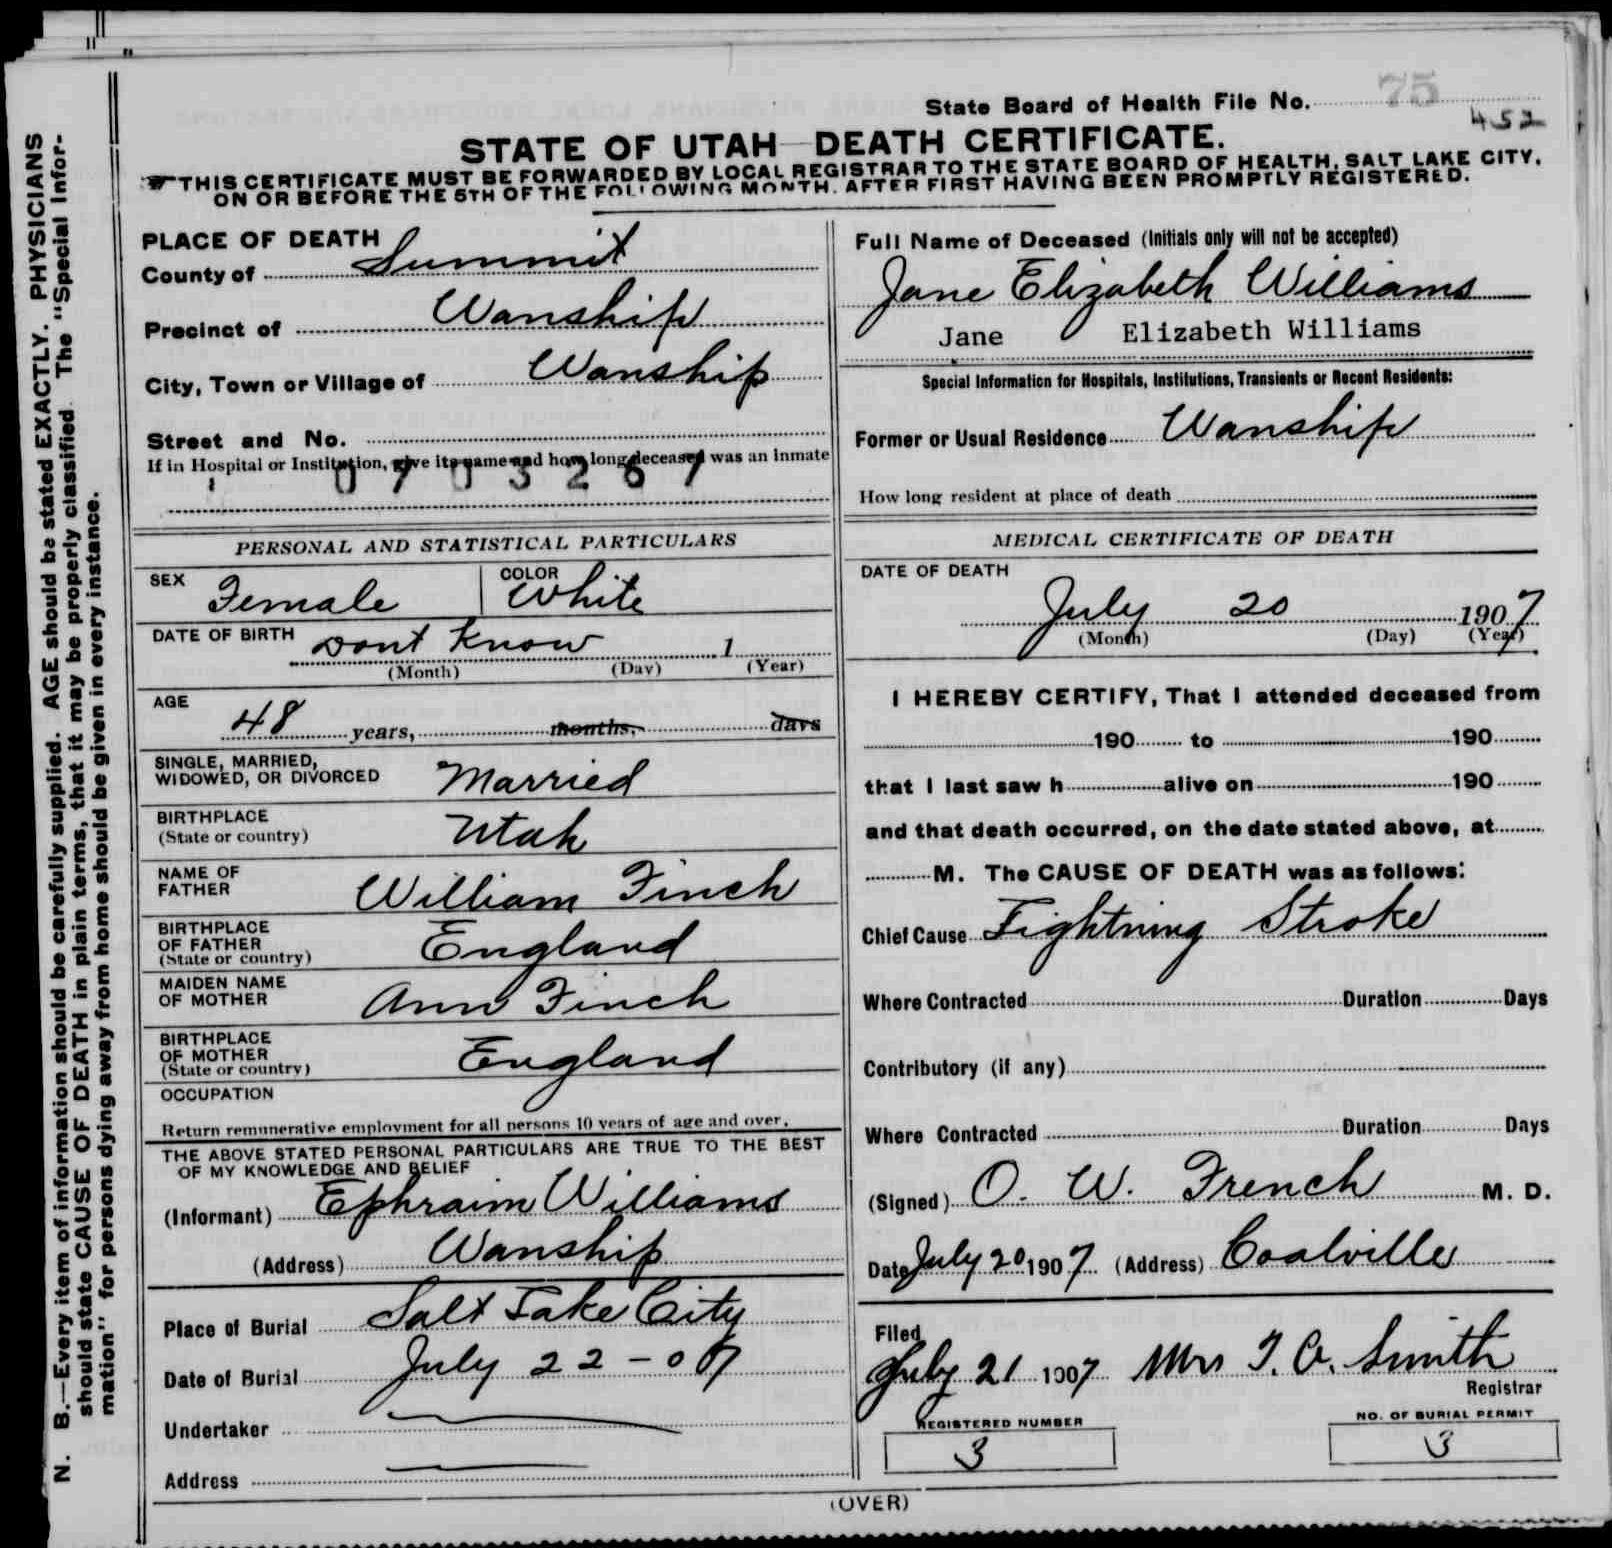 N. B.—Every item of information should be carefully supplied. AGE should be stated EXACTLY. PHYSICIANS
should state CAUSE OF DEATH in plain terms, that it may be properly classified. The "Special Infor-
mation" for persons dying away from home should be given in every instance.
State Board of Health File No. 75
452
STATE OF UTAH—DEATH CERTIFICATE.
THIS CERTIFICATE MUST BE FORWARDED BY LOCAL REGISTRAR TO THE STATE BOARD OF HEALTH, SALT LAKE CITY,
ON OR BEFORE THE 5TH OF THE FOLLOWING MONTH, AFTER FIRST HAVING BEEN PROMPTLY REGISTERED.
PLACE OF DEATH
County of Summit
Precinct of Wanship
City, Town or Village of Wanship
Street and No.
If in Hospital or Institution, give its name and how long deceased was an inmate
0703267
PERSONAL AND STATISTICAL PARTICULARS
SEX Female COLOR White
DATE OF BIRTH Dont Know 1
(Month) (Day) (Year)
AGE
48 years, months, days
SINGLE, MARRIED,
WIDOWED, OR DIVORCED Married
BIRTHPLACE
(State or country) Utah
NAME OF
FATHER William Finch
BIRTHPLACE
OF FATHER England
(State or country)
MAIDEN NAME
OF MOTHER Ann Finch
BIRTHPLACE
OF MOTHER England
(State or country)
OCCUPATION
Return remunerative employment for all persons 10 years of age and over.
THE ABOVE STATED PERSONAL PARTICULARS ARE TRUE TO THE BEST
OF MY KNOWLEDGE AND BELIEF
(Informant) Ephraim Williams
(Address) Wanship
Place of Burial Salt Lake City
Date of Burial July 22-07
Undertaker
Address
Full Name of Deceased (Initials only will not be accepted)
Jane Elizabeth Williams
Jane Elizabeth Williams
Special Information for Hospitals, Institutions, Transients or Recent Residents:
Former or Usual Residence Wanship
How long resident at place of death
MEDICAL CERTIFICATE OF DEATH
DATE OF DEATH
July 20 1907
(Month) (Day) (Year)
I HEREBY CERTIFY, That I attended deceased from
190 to 190
that I last saw h alive on 190
and that death occurred, on the date stated above, at
M. The CAUSE OF DEATH was as follows:
Chief Cause Lightning Stroke
Where Contracted Duration Days
Contributory (if any)
Where Contracted Duration Days
(Signed) O. W. French M. D.
Date July 20 1907 (Address) Coalville
Filed
July 21 1907 Mrs Smith
Registrar
REGISTERED NUMBER
3
NO. OF BURIAL PERMIT
3
(OVER)